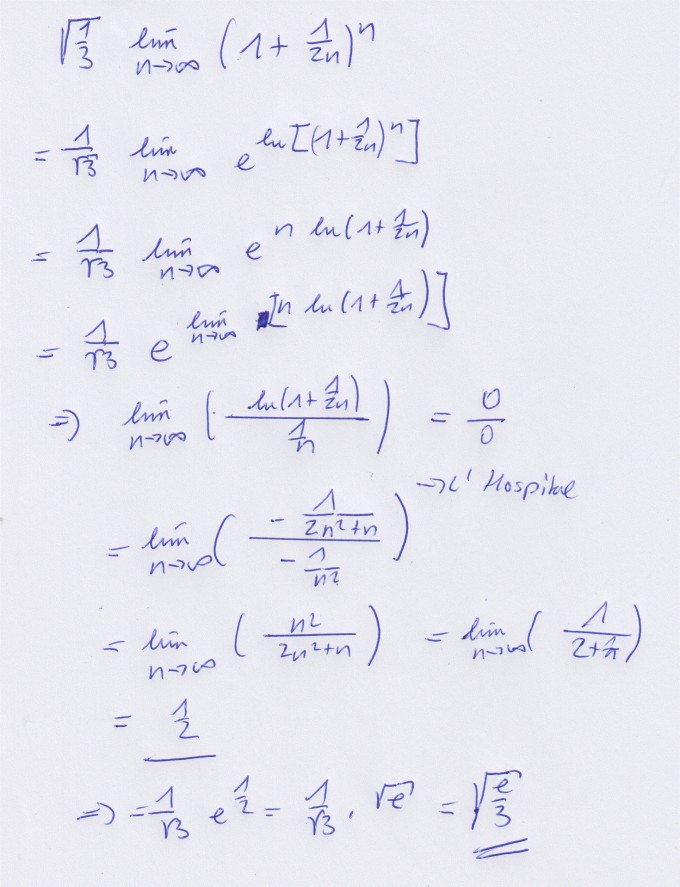 √(1/3) lim n→∞ (1 + 1/2n)^n
= 1/√3 lim n→∞ e^(ln[(1+1/2n)^n])
= 1/√3 lim n→∞ e^(n ln(1+1/2n))
= 1/√3 e^(lim n→∞ [n ln(1+1/2n)])
⇒ lim n→∞ ( ln(1+1/2n) / (1/n) ) = 0/0
→ L' Hospital
= lim n→∞ ( (- 1/(2n²+n)) / (- 1/n²) )
= lim n→∞ ( n²/(2n²+n) ) = lim n→∞ ( 1/(2+1/n) )
= 1/2
⇒ = 1/√3 e^(1/2) = 1/√3 · √e = √(e/3)